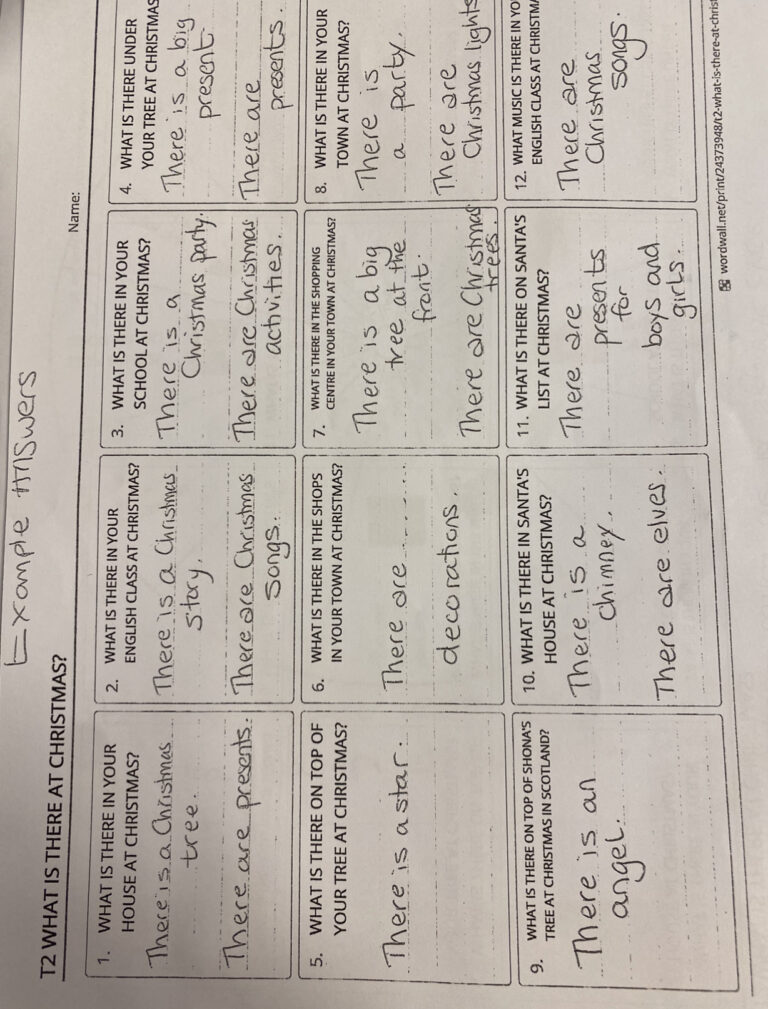 Example Answers
T2 WHAT IS THERE AT CHRISTMAS?
Name:
1. WHAT IS THERE IN YOUR
HOUSE AT CHRISTMAS?
There is a Christmas
tree.
There are presents.
2. WHAT IS THERE IN YOUR
ENGLISH CLASS AT CHRISTMAS?
There is a Christmas
story.
There are Christmas
songs.
3. WHAT IS THERE IN YOUR
SCHOOL AT CHRISTMAS?
There is a
Christmas party.
There are Christmas
activities.
4. WHAT IS THERE UNDER
YOUR TREE AT CHRISTMAS
There is a big
present.
There are
presents.
5. WHAT IS THERE ON TOP OF
YOUR TREE AT CHRISTMAS?
There is a star.
6. WHAT IS THERE IN THE SHOPS
IN YOUR TOWN AT CHRISTMAS?
There are
decorations.
7. WHAT IS THERE IN THE SHOPPING
CENTRE IN YOUR TOWN AT CHRISTMAS?
There is a big
tree at the
front.
There are Christmas
trees.
8. WHAT IS THERE IN YOUR
TOWN AT CHRISTMAS?
There is
a party.
There are
Christmas lights
9. WHAT IS THERE ON TOP OF SHONA'S
TREE AT CHRISTMAS IN SCOTLAND?
There is an
angel.
10. WHAT IS THERE IN SANTA'S
HOUSE AT CHRISTMAS?
There is a
chimney.
There are elves.
11. WHAT IS THERE ON SANTA'S
LIST AT CHRISTMAS?
There are
presents
for
boys and
girls.
12. WHAT MUSIC IS THERE IN YO
ENGLISH CLASS AT CHRISTM
There are
Christmas
songs.
wordwall.net/print/24373948/t2-what-is-there-at-christ